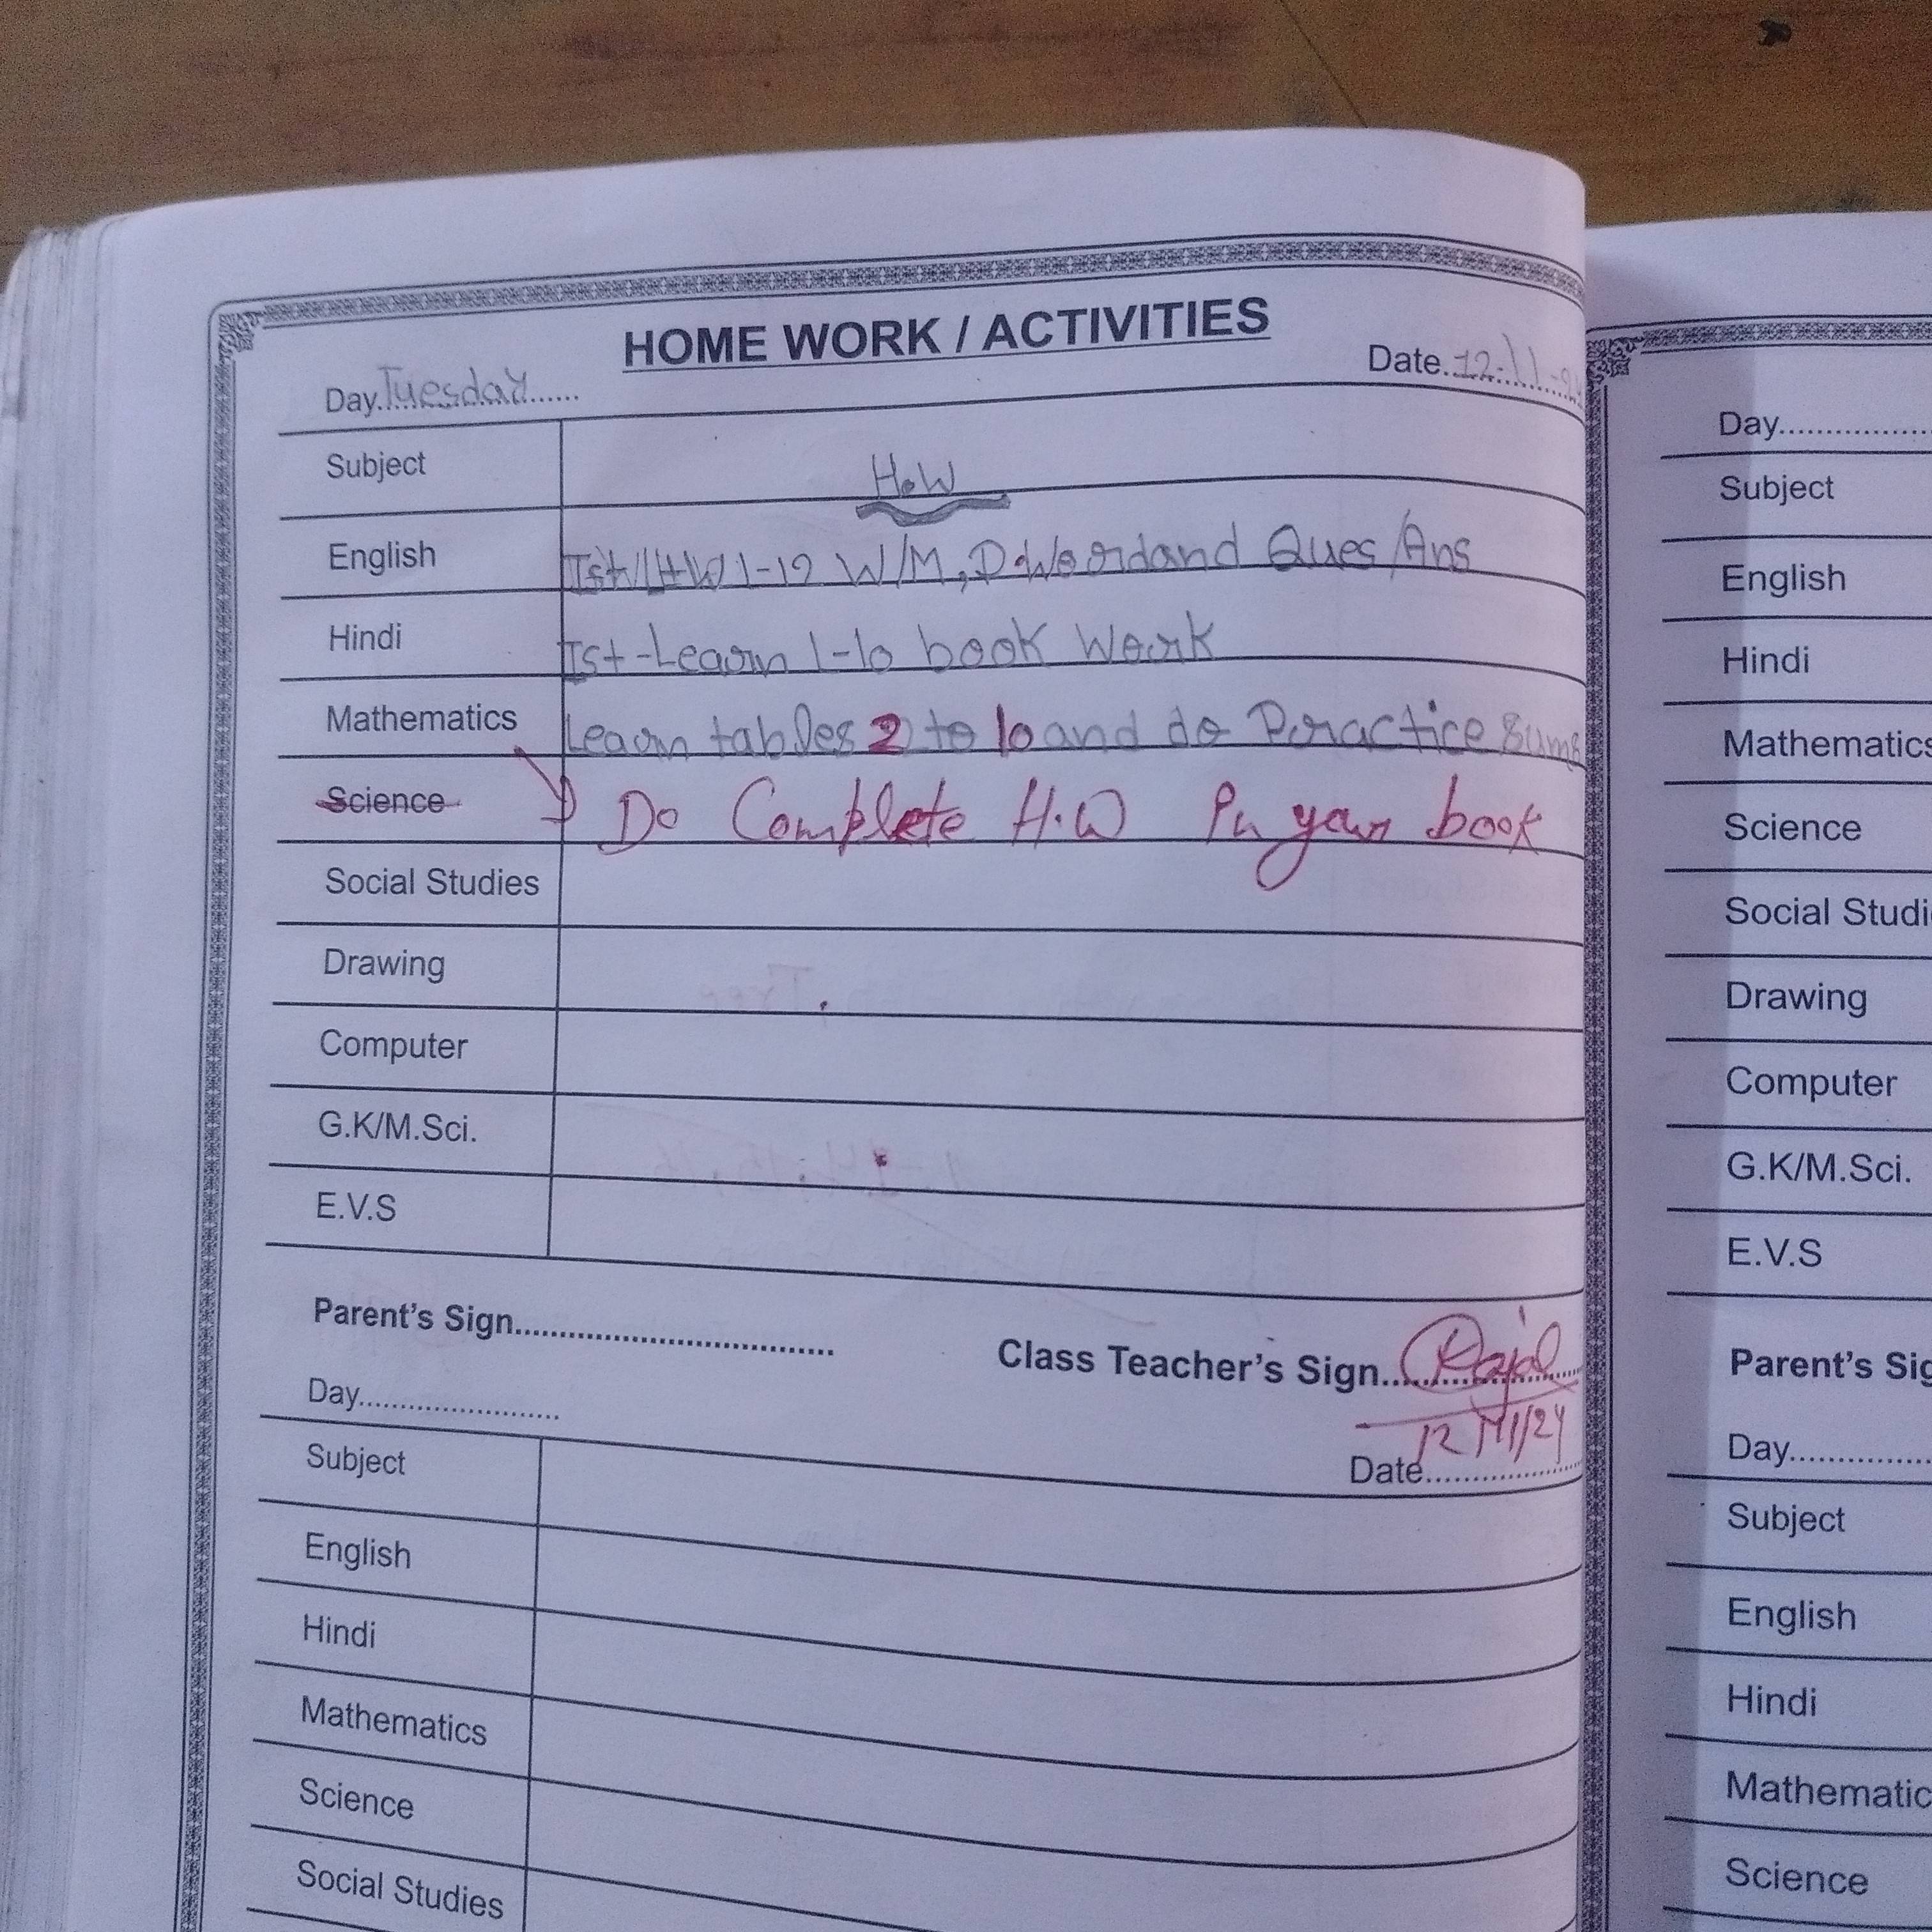 HOME WORK / ACTIVITIES
Day.Tuesday......
Date.12-11-
Subject
H.W
English
Ist/ 1-12 W/M, D.Word and Ques/Ans
Hindi
Ist-Learn 1-10 book Work
Mathematics
Learn tables 2 to 10 and do Practice Sums
Science
Do Complete H.W in your book
Social Studies
Drawing
Computer
G.K/M.Sci.
E.V.S
Parent's Sign..................................
Class Teacher's Sign..................
12/11/24
Day........................
Date..................
Subject
English
Hindi
Mathematics
Science
Social Studies
Day................
Subject
English
Hindi
Mathematics
Science
Social Studi
Drawing
Computer
G.K/M.Sci.
E.V.S
Parent's Sig
Day..............
Subject
English
Hindi
Mathematic
Science